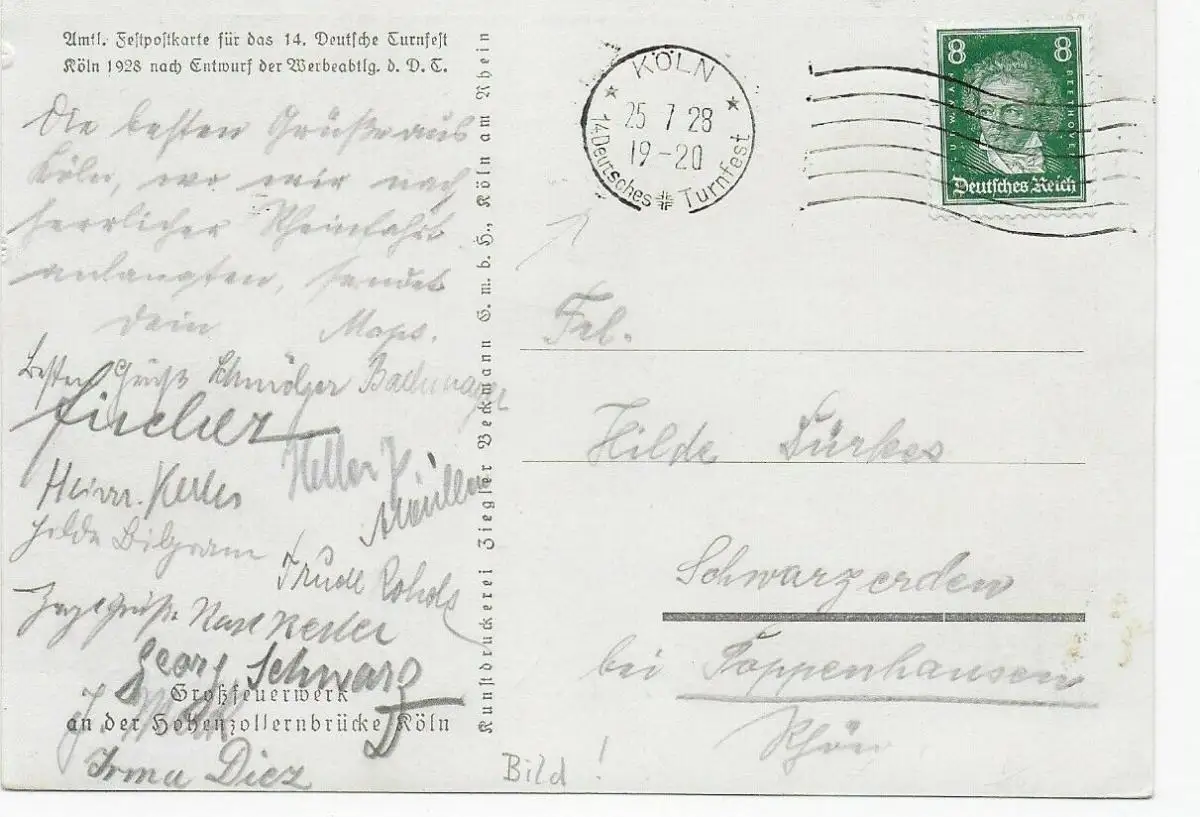 Amtl. Festpostkarte für das 14. Deutsche Turnfest
Köln 1928 nach Entwurf der Werbeabtlg. d. D. T.
Die besten Grüße aus
Köln, wo wir nach
herrlicher Rheinfahrt
anlangten, sendet
Dein
Besten Gruß
Fischer
Keller
Müller
Heinr.
Hilde Bilgram
Trude
Georg Schwarz
Großfeuerwerk
an der Hohenzollernbrücke Köln
Irma Diez
Kunstdruckerei Ziegler Beckmann G. m. b. H., Köln am Rhein
KÖLN
25 7 28
19-20
14 Deutsches Turnfest
8 8
LUDWIG VAN BEETHOVEN
Deutsches Reich
Frl.
Hilde
Schwarzerden
bei Poppenhausen
Rhön
Bild!